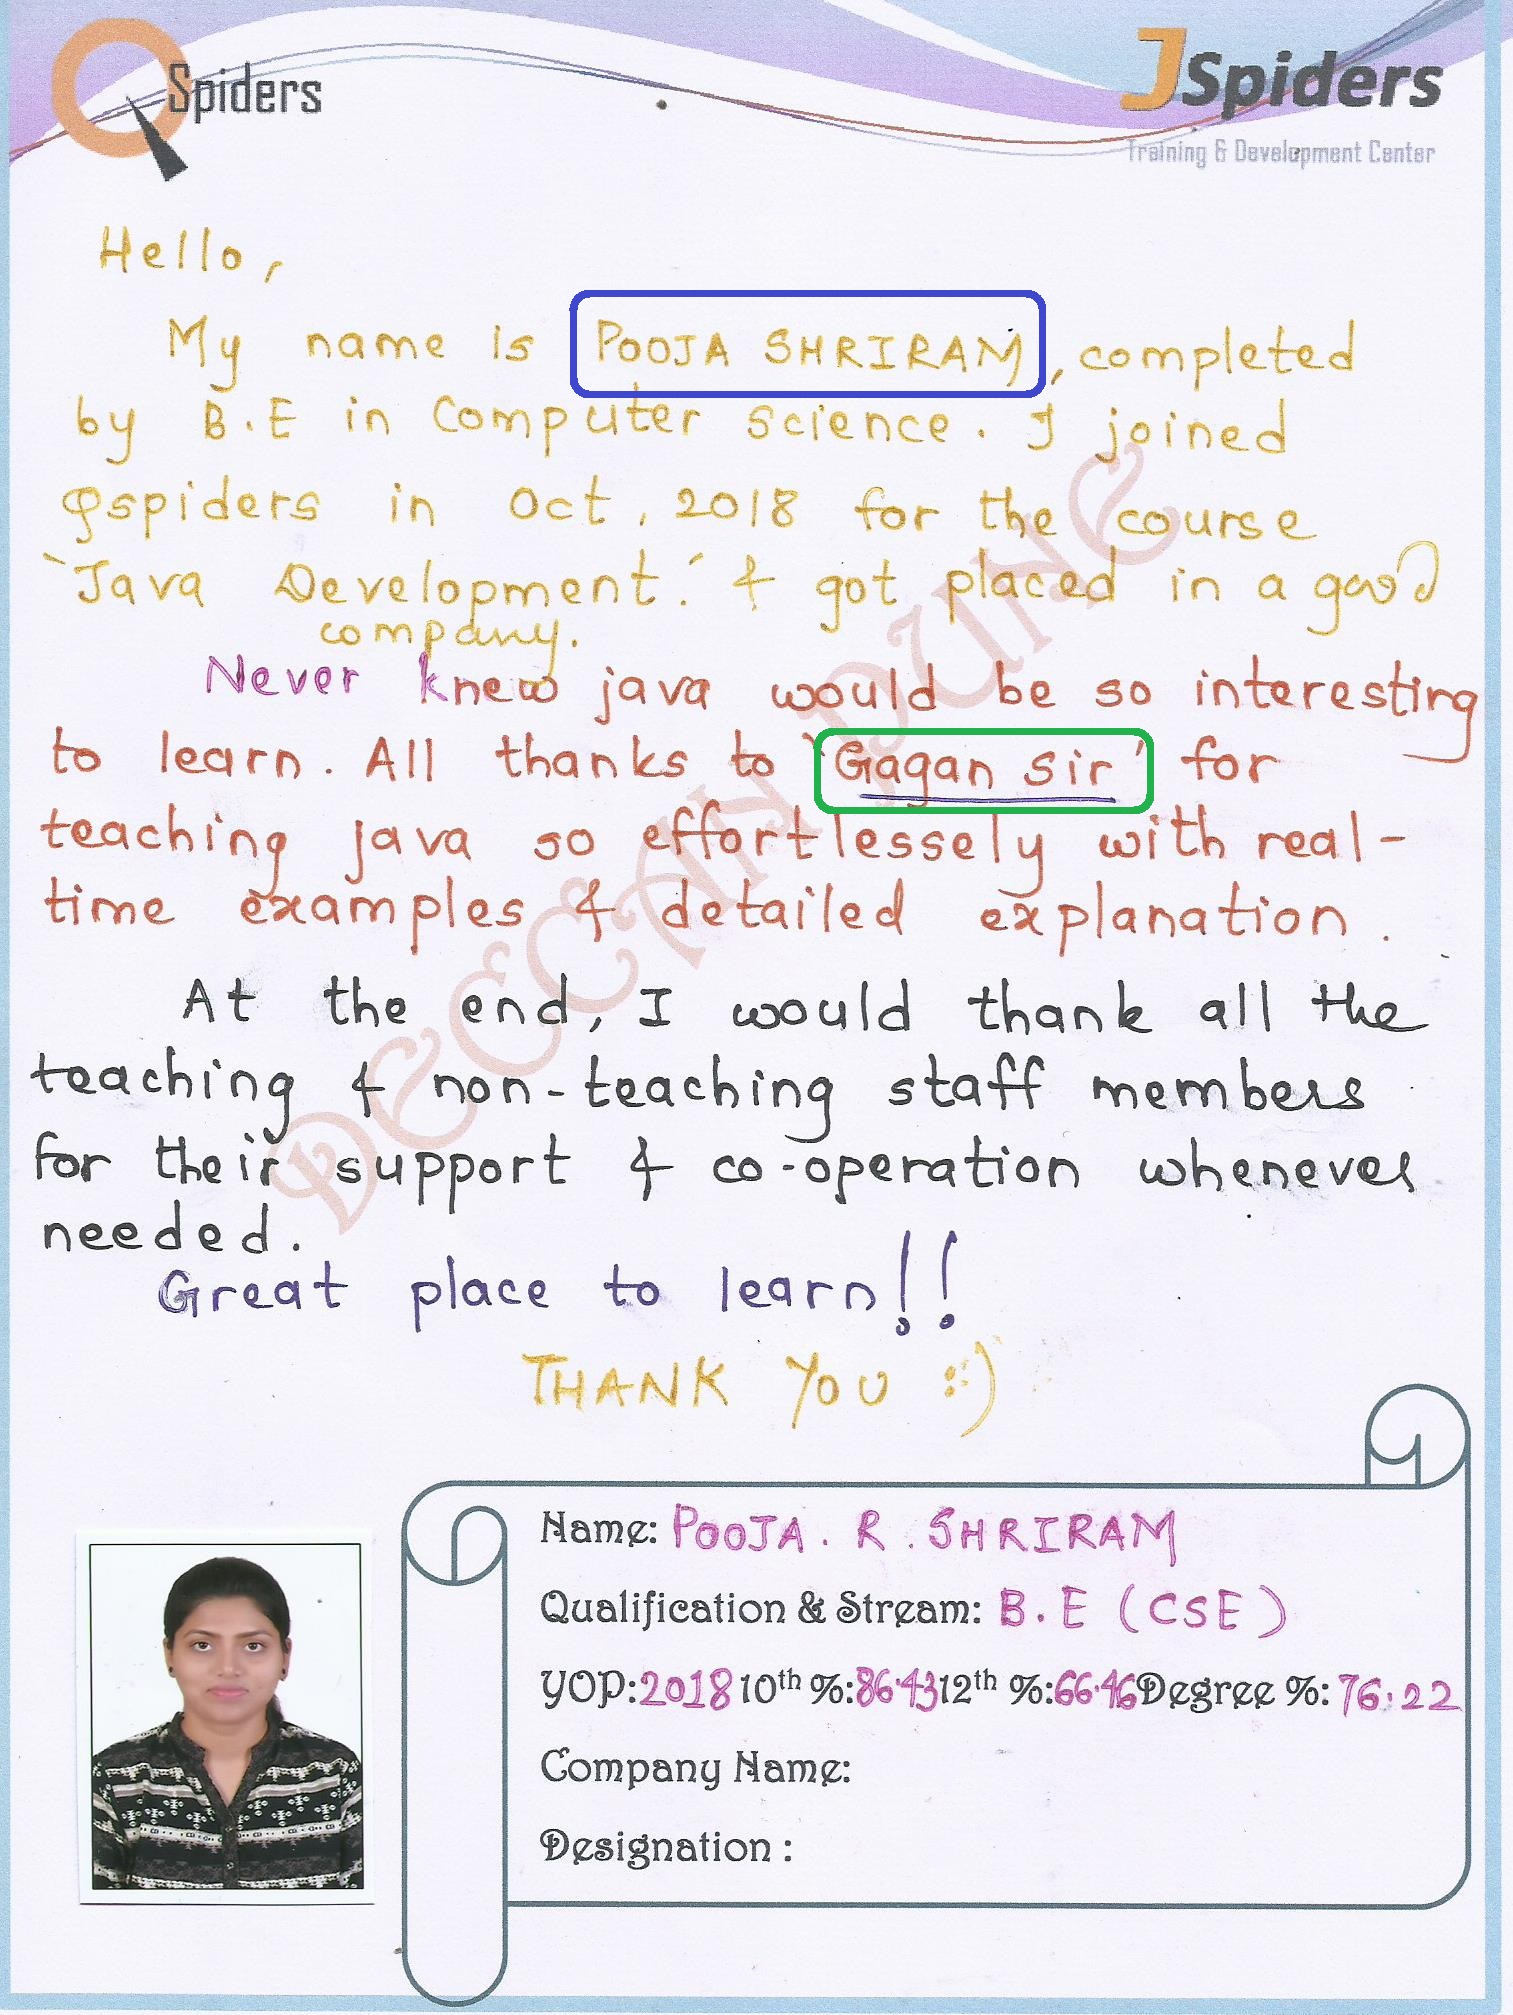 Spiders
JSpiders
Training & Development Center
Hello,
My name is POOJA SHRIRAM, completed
by B.E in Computer Science. I joined
Qspiders in Oct, 2018 for the course
`Java Development.´ & got placed in a good
company.
Never knew java would be so interesting
to learn. All thanks to `Gagan sir' for
teaching java so effortlessely with real-
time examples & detailed explanation.
At the end, I would thank all the
teaching & non-teaching staff members
for their support & co-operation whenever
needed.
Great place to learn!!
THANK YOU :)
DECCAN DUNE
Name: POOJA. R. SHRIRAM
Qualification & Stream: B.E (CSE)
YOP:2018 10th %:86.43 12th %:66.46 Degree %: 76.22
Company Name:
Designation :